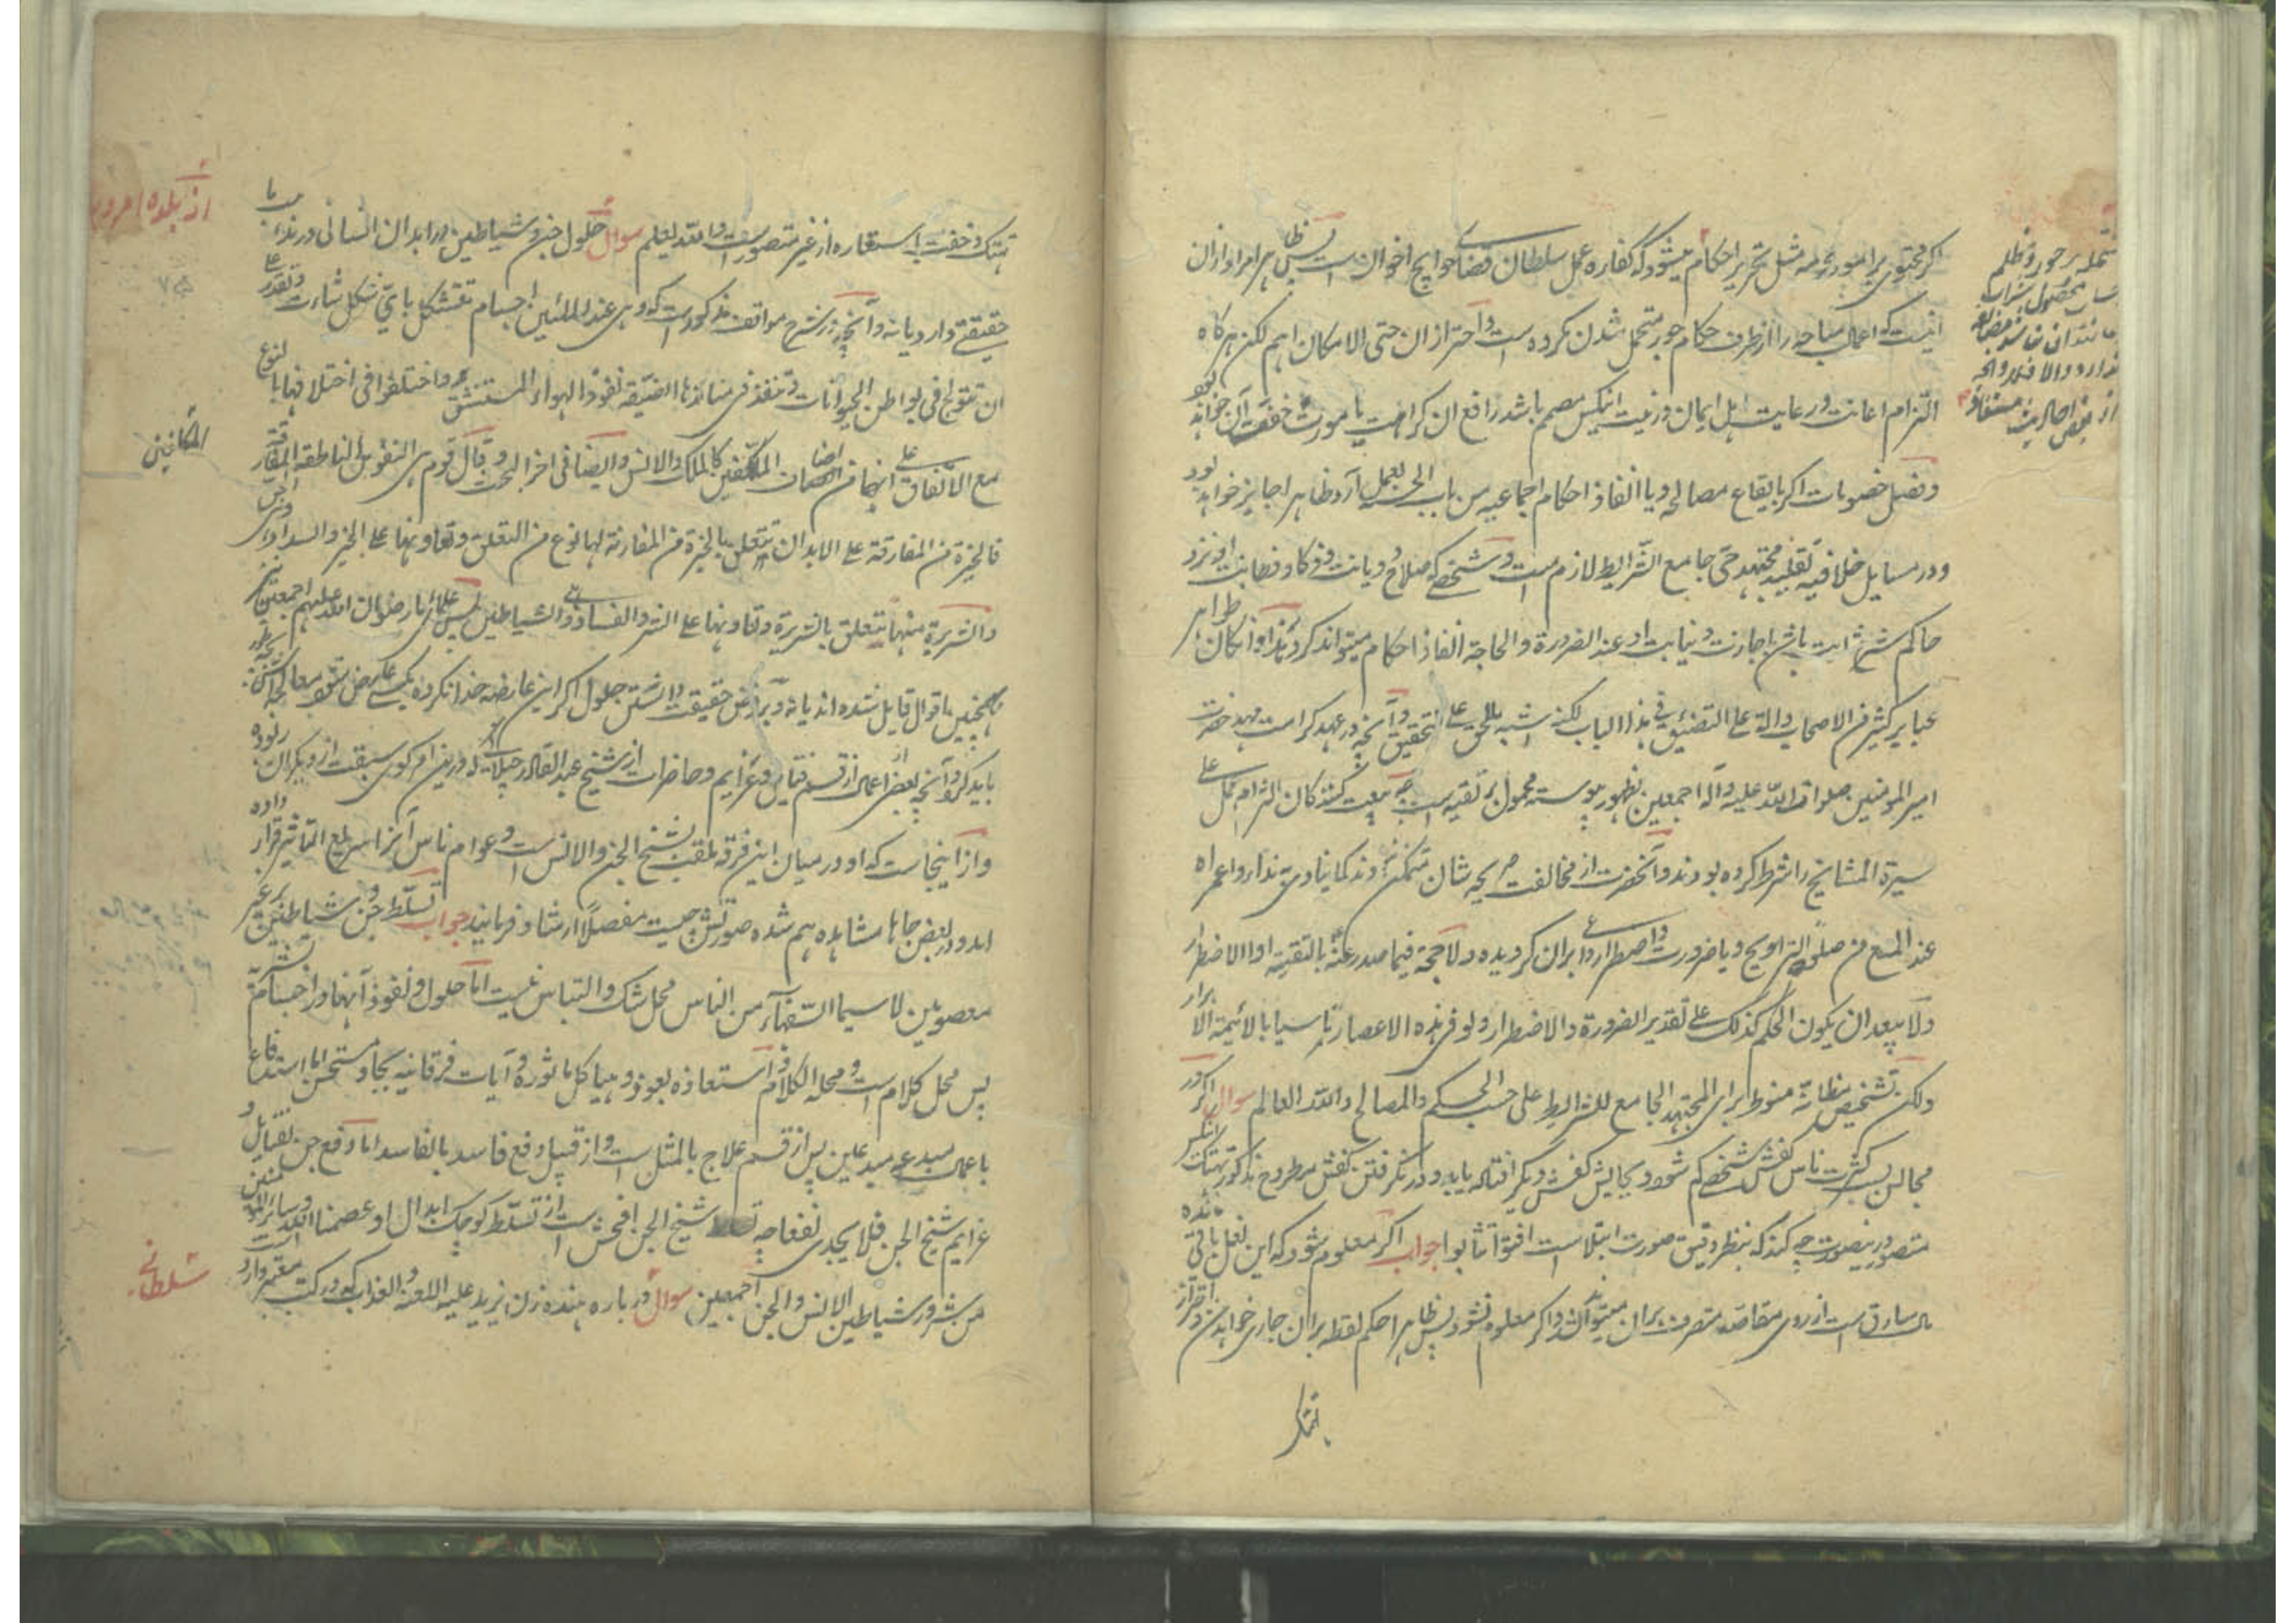 اکر محتوی بر امور محرمه مثل تحریر احکام میشود که کفاره عمل سلطان قضای حوایج اخوان است پس ظاهر امر او ازان
انیست که اعمال مباحه را از طرف حکام جور متحمل شدن مکروه است و احتراز ازان حتی الامکان اهم لکن هر کاه
التزام اعانت و رعایت اهل ایمان در نیت انکس مصمم باشد رافع ان کراهت یا مورث خفت آن خواهد بود
و فصل خصومات اکر بایقاع مصالحه و یا انفاذ احکام اجماعیه من باب الحسبه بعمل آرد ظاهرا جایز خواهد بود
و در مسایل خلافیه تقلید مجتهد حی جامع الشرایط لازم است و شخصی که صلاح و دیانت و ذکا و فطانت او نزد
حاکم شرع ثابت باشد باجازت و نیابت او عند الضرورة و الحاجة انفاذ احکام میتواند کرد و هذا و ان کان ظواهر
عبایر کثیر من الاصحاب دالة علی التضییق فی هذا الباب لکنه اشبه بالحق علی التحقیق و آنچه در عهد کرامت مهد حضرت
امیر المومنین صلوات الله علیه و آله اجمعین بظهور پیوسته محمول بر تقیه است چه بیعت کنندکان التزام عمل علی
سیرة المشایخ را شرط کرده بودند و آنحضرت از مخالفت صریحه شان متمکن نبودند کما ینادی به نداء واعمراه
عند المنع من صلوة التراویح و یا ضرورت و اضطرار داعی بران کردیده و لا حجة فیما صدر عنه بالتقیة او الاضطرار
و لا یبعد ان یکون الحکم کذلک علی تقدیر الضرورة و الاضطرار و لو فی هذه الاعصار تاسیا بالائمة الابرار
ولکن تشخیص مظانه منوط برای المجتهد الجامع للشرایط علی حسب الحکم و المصالح والله العالم سوال اکر در
مجالس بسبب کثرت ناس کفش شخصی کم شود و بجایش کفش دیکر افتاده یابد و در نکرفتن کفش مطروح مذکور تهتک انکس
متصور درینصورت چه کند که بنظر دقیق صورت ابتلا است افتونا تثابوا جواب اکر معلوم شود که این نعل باقی مانده
مال سارق است از روی مقاصه متصرف بران میتواند شد و اکر معلوم نشود پس ظاهرا حکم لقطه بران جاری خواهد شد و احتراز
تهتک
تهتک و خفت باستعاره از غیر متصور است والله یعلم سوال حلول جن و شیاطین در ابدان انسانی در مذهب ما
حقیقتی دارد یا نه و آنچه در شرح مواقف مذکور است که و هی عند الملئین اجسام تتشکل بای شکل شاءت و تقدر علی
ان تتولج فی بواطن الحیوانات و تنفذ فی منافذها الضیقة نفوذ الهواء المستنشق و اختلفوا فی اختلافها بالنوع
مع الاتفاق علی انها من اصناف المکلفین کالملک و الانس و ایضا فی اخر البحث و قال قوم هی النفوس الناطقة المفارقة
فالخیرة من المفارقة علی الابدان تتعلق بالخیرة من المقارنة لها نوع من التعلق و تعاونها علی الخیر و السداد و هی الجن
و الشریرة منها تتعلق بالشریرة و تعاونها علی الشر و الفساد و هی الشیاطین پس علمای ما رضوان الله علیهم اجمعین نیز
باینچنین اقوال قایل شده اند یا نه و بر فرض حقیقت داشتن حلول اکر این عارضه خدا نکرده بکسی عارض شود معالجه اش بچه طور
باید کرد و آنچه بعض اعمال از قسم فتایل و عزایم و حاضرات از شیخ عبد القادر جیلانی که درین امر کوی سبقت از دیکران ربوده
و از اینجاست که او در میان این فرقه ملقب بشیخ الجن و الانس است و عوام ناس آنرا سریع التاثیر قرار داده
اند و در بعض جاها مشاهده هم شده صورتش چیست مفصلا ارشاد فرمایند جواب تسلط جن و شیاطین بر غیر
معصومین لا سیما السفهاء من الناس محل شک و التباس نیست اما حلول و نفوذ آنها در اجسام بشریه
پس محل کلام است و محله الکلام و استعاذه بعوذ و هیاکل ماثوره و آیات فرقانیه بجا و مستحسن اما استدفاع
با عمال مبدعی مبدعین پس از قسم علاج بالمثل است و از قبیل دفع فاسد بالفاسد اما دفع جن بفتایل و
عزایم شیخ الجن فلا یجدی نفعا چه تسلط شیخ الجن افحش است از تسلط کوچک ابدال او عصمنا الله و سائر المومنین
من شرور شیاطین الانس و الجن اجمعین سوال در باره هنده زن یزید علیه اللعنه و العذاب که در کتب معتبره وارد است
از بلده امروهه
المکانین
سلطانی